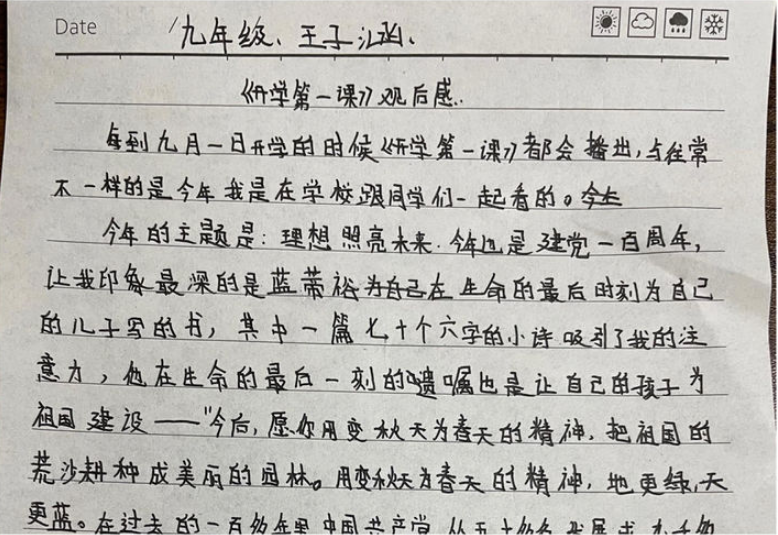 Date
九年级、王子涵、
《开学第一课》观后感..
每到九月一日开学的时候《开学第一课》都会播出,与往常
不一样的是今年我是在学校跟同学们一起看的。今年
今年的主题是:理想照亮未来.今年也是建党一百周年,
让我印象最深的是蓝蒂裕为自己在生命的最后时刻为自己
的儿子写的书,其中一篇七十个六字的小诗吸引了我的注
意力,他在生命的最后一刻的遗嘱也是让自己的孩子为
祖国建设——"今后,愿你用变秋天为春天的精神,把祖国的
荒沙耕种成美丽的园林。用变秋天为春天的精神,地更绿,天
更蓝。在过去的一百多年里中国共产党从五十多名发展成